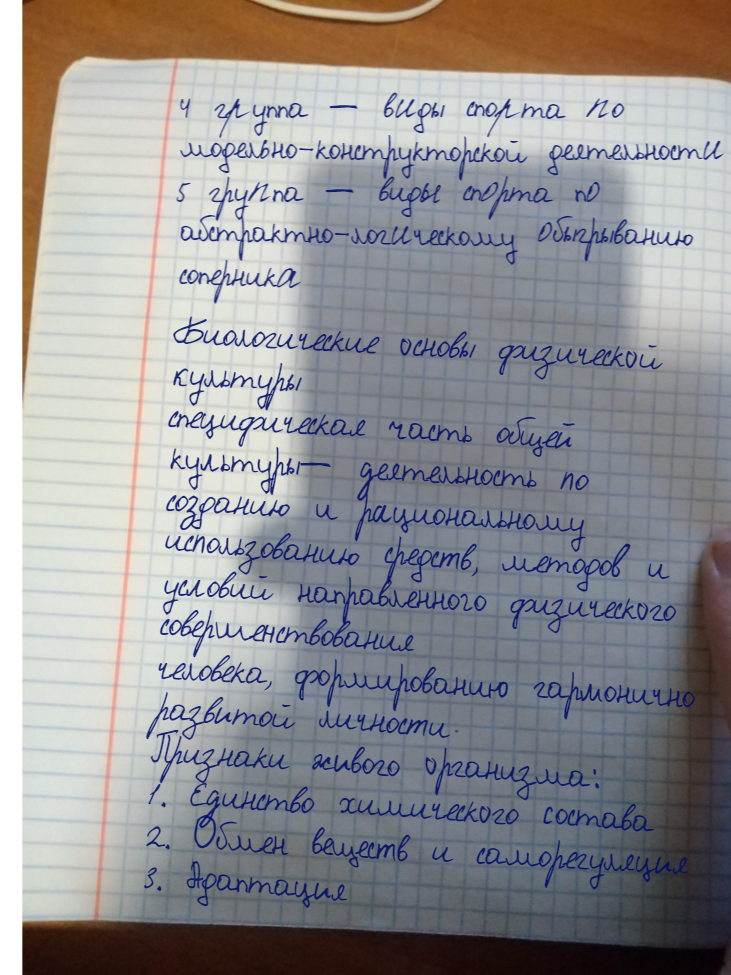 4 группа — виды спорта по
модельно-конструкторской деятельности
5 группа — виды спорта по
абстрактно-логическому обыгрыванию
соперника
Биологические основы физической
культуры
специфическая часть общей
культуры— деятельность по
созданию и рациональному
использованию средств, методов и
условий направленного физического
совершенствования
человека, формированию гармонично
развитой личности.
Признаки живого организма:
1. Единство химического состава
2. Обмен веществ и саморегуляция
3. Адаптация